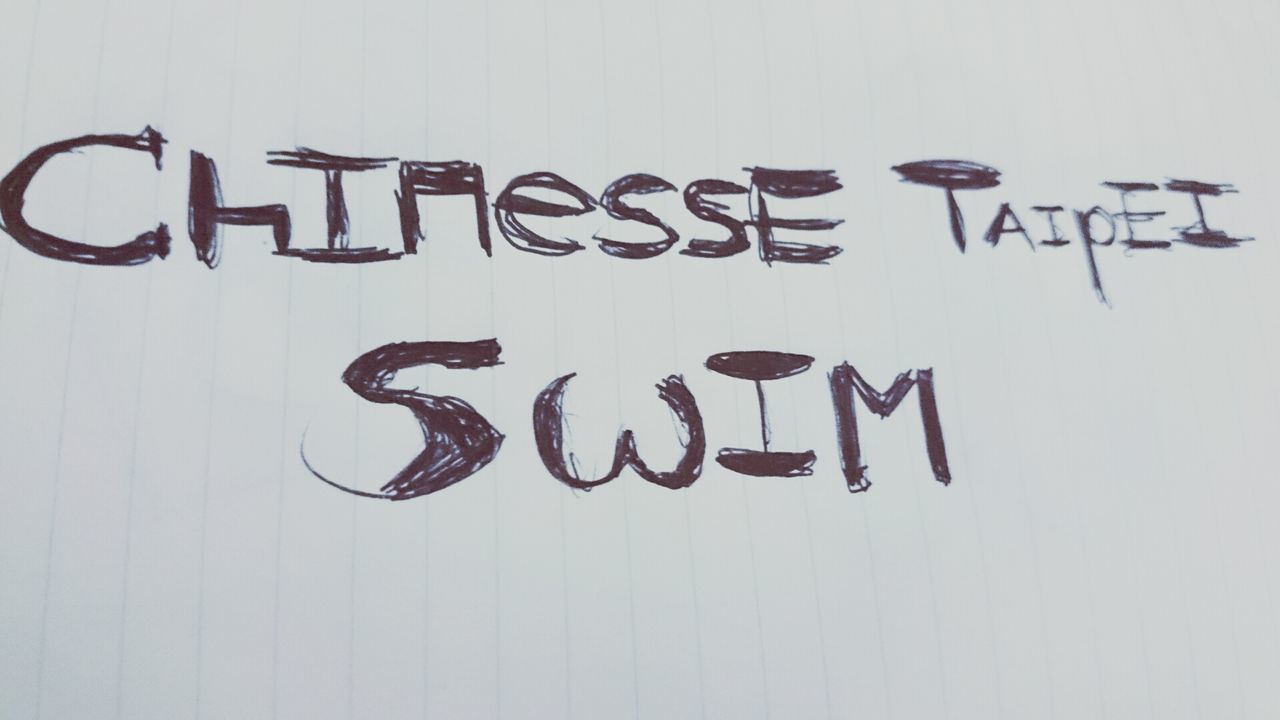 CHINesSE TAIpEI
SWIM